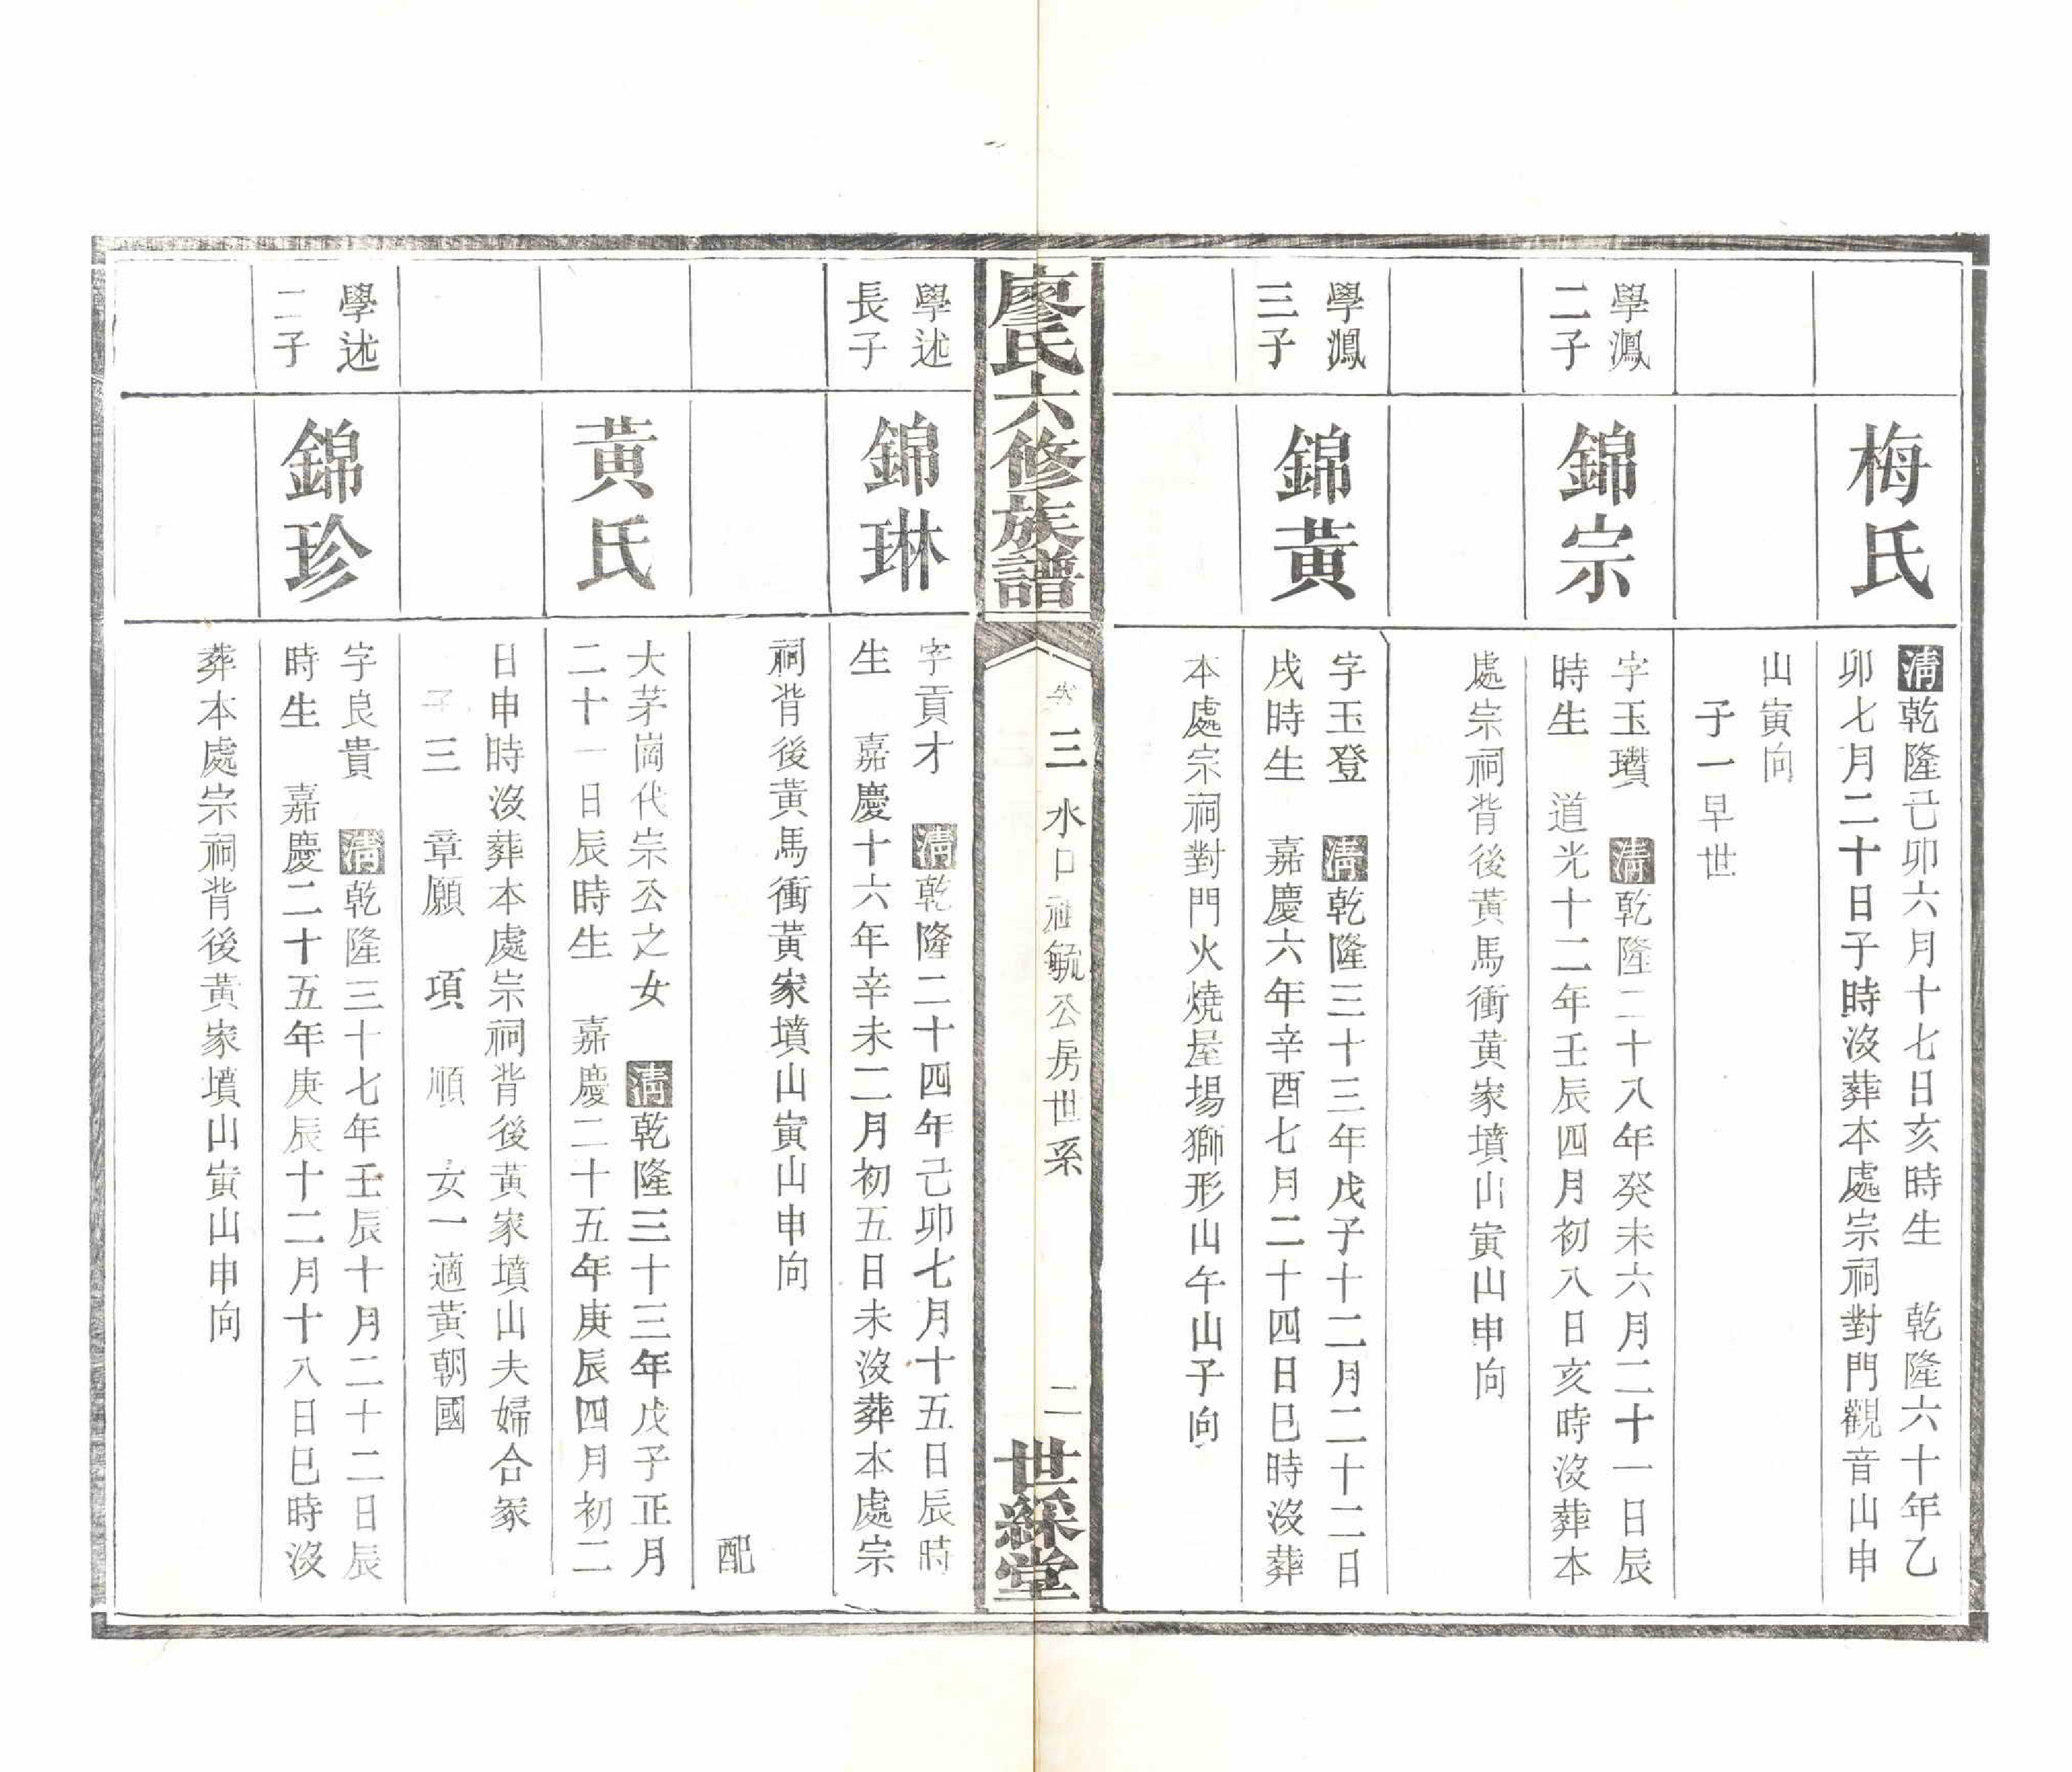 梅氏
清乾隆己卯六月十七日亥時生 乾隆六十年乙
卯七月二十日子時沒葬本處宗祠對門觀音山申
山寅向
子一早世
學鳳
二子
錦宗
字玉瓚 清乾隆二十八年癸未六月二十一日辰
時生 道光十二年壬辰四月初八日亥時沒葬本
處宗祠背後黃馬衝黃家墳山寅山申向
學鳳
三子
錦黃
字玉登 清乾隆三十三年戊子十二月二十二日
戌時生 嘉慶六年辛酉七月二十四日巳時沒葬
本處宗祠對門火燒屋場獅形山午山子向
廖氏六修族譜
卷三 水口祖毓公房世系
二
世綵堂
學述
長子
錦琳
字貢才 清乾隆二十四年己卯七月十五日辰時
生 嘉慶十六年辛未二月初五日未沒葬本處宗
祠背後黃馬衝黃家墳山寅山申向
配
黃氏
大茅崗代宗公之女 清乾隆三十三年戊子正月
二十一日辰時生 嘉慶二十五年庚辰四月初二
日申時沒葬本處宗祠背後黃家墳山夫婦合冢
子三 章願 項 順 女一適黃朝國
學述
二子
錦珍
字良貴 清乾隆三十七年壬辰十月二十二日辰
時生 嘉慶二十五年庚辰十二月十八日巳時沒
葬本處宗祠背後黃家墳山寅山申向